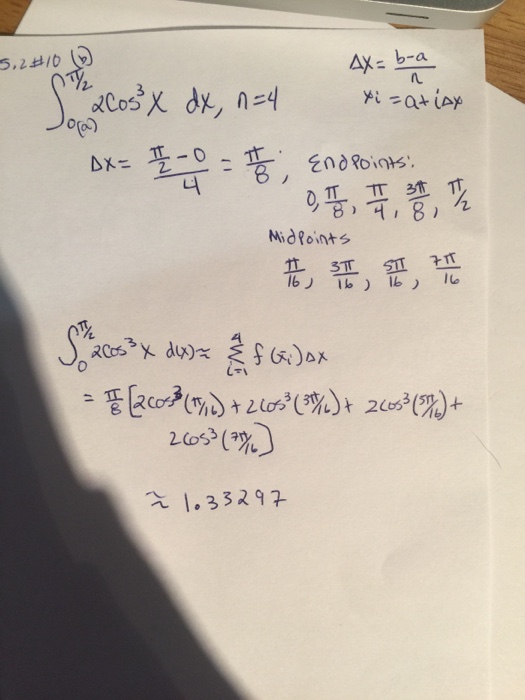 5.2#10 (b)
Δx = b-a/n
xi = a+iΔx
∫₀(a)^π/2 2Cos³X dx, n=4
Δx = (π/2 - 0)/4 = π/8, Endpoints:
0, π/8, π/4, 3π/8, π/2
Midpoints
π/16, 3π/16, 5π/16, 7π/16
∫₀^π/2 2cos³x d(x) ≈ ⁴Σᵢ₌₁ f(x̄i)Δx
= π/8 [2cos³(π/16) + 2cos³(3π/16) + 2cos³(5π/16) +
2cos³(7π/16)]
≈ 1.33297